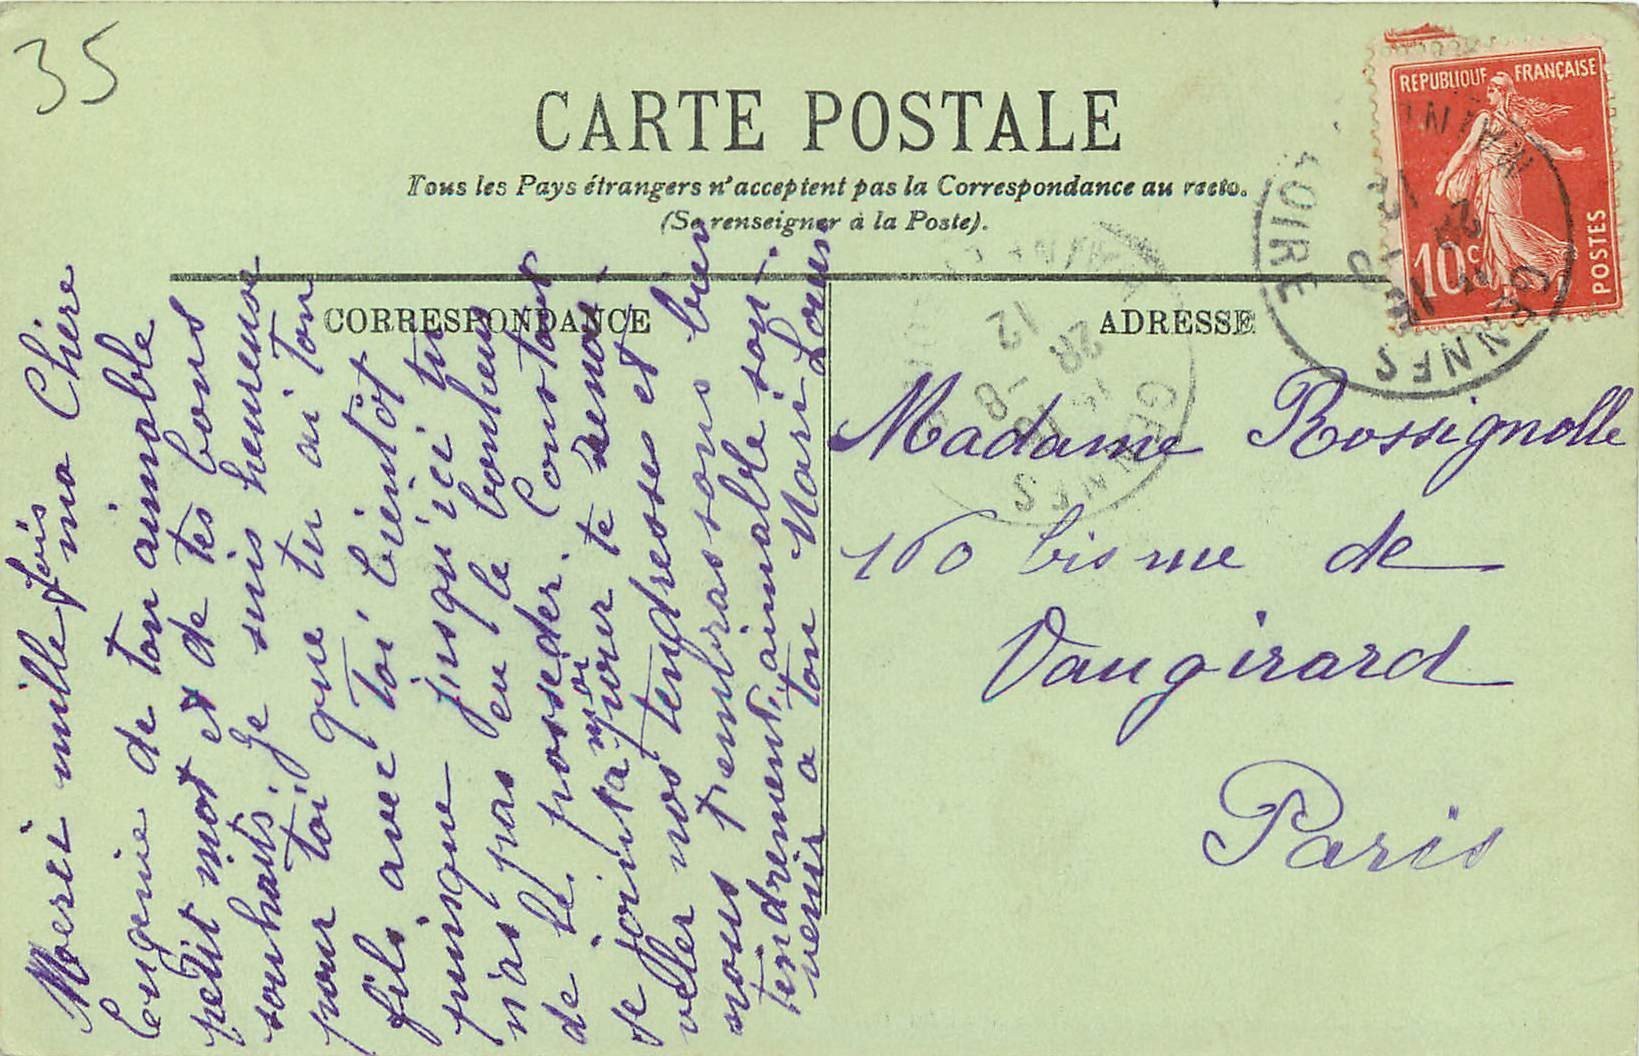 35
CARTE POSTALE
Tous les Pays étrangers n'acceptent pas la Correspondance au recto.
(Se renseigner à la Poste).
CORRESPONDANCE
ADRESSE
REPUBLIQUE FRANÇAISE
10c POSTES
GENNES
LOIRE
GENNES
12
28 -8
Madame Rossignolle
160 bis rue de
Vaugirard
Paris
Merci mille fois ma Chère
Eugénie de ton aimable
petit mot et de tes bons
souhaits. Je suis heureuse
pour toi que tu ai ton
fils avec Toi bientôt
puisque jusqu'ici tu
n'as pas eu le bonheur
de le posséder. Constant
se joint a moi pour te renou-
veller nos tendresses et
nous t'embrassons bien
tendrement, aimable sou-
venir a ton Mari Louis